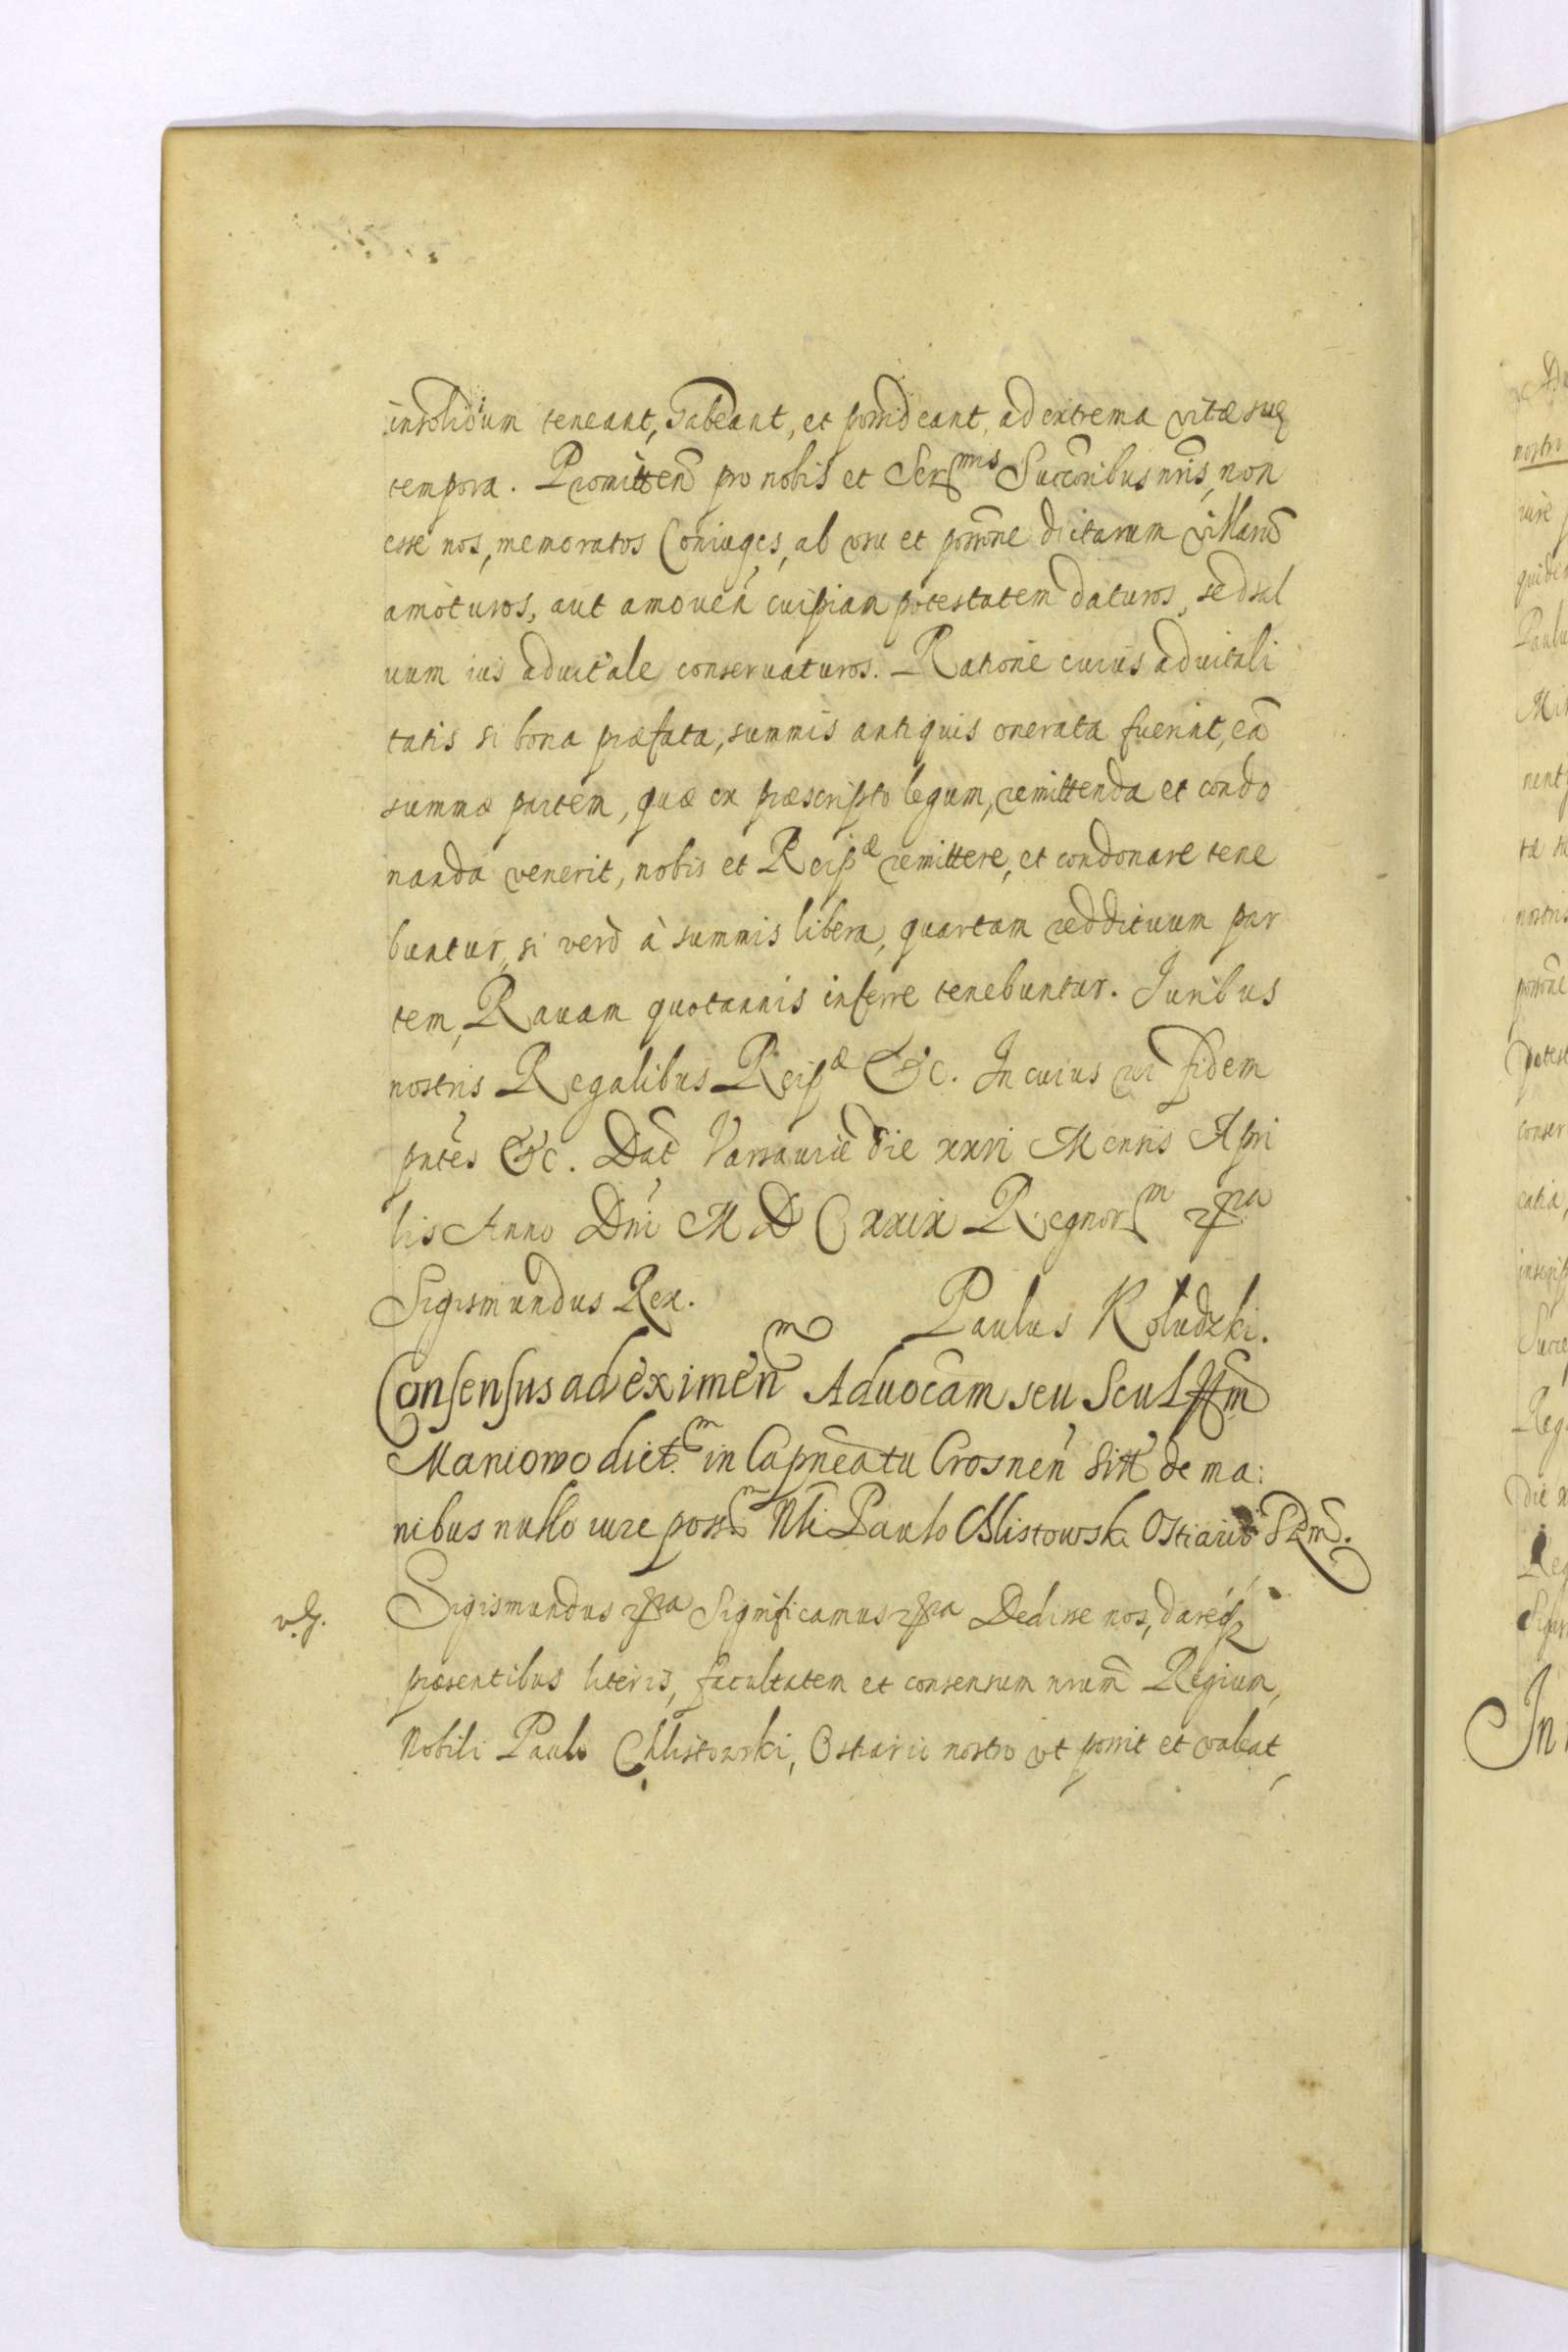 insolidum teneant, habeant, et possideant, ad extrema vitæ suę
tempora. Promitten̄ pro nobis et Serᵐⁱˢ Succ̄oribus nr̄is, non
esse nos, memoratos Coniuges, ab usu et poss̄one dictarum villarū
amoturos, aut amouen̄ cuipiam potestatem daturos, sed sal
uum ius aduitale conseruaturos. Ratione cuius aduitali
tatis si bona præfata, summis antiquis onerata fuerint, eā
summæ partem, quæ ex præscripto legum, remittenda et condo
nanda venerit, nobis et Reipᵃᵉ remittere, et condonare tene
buntur, si verò à summis libera, quartam reddituum par
tem, Rauam quotannis inferre tenebuntur. Juribus
nostris Regalibus Reipᵃᵉ &c. In cuius rei fidem
pn̄tes &c. Dat̄ Varsauiæ die xxvi Mensis Apri
lis Anno Dn̄i M D C xxix Regnorᵐ
Sigismundus Rex.
Paulus Kołudzki.
Consensus ad eximen̄ᵐ Aduocām seu Scult̄m
Maniowo dictᵐ in Capn̄eatu Crosnen̄ sitt̄ de ma:
nibus nullo iure possᵐ Nli Paulo Chlistowski Ostiario SRM.
v.g.
Sigismundus Significamus Dedisse nos, dareq́ꝫ
præsentibus literis, facultatem et consensum nrum̄ Regium,
Nobili Paulo Chlistowski, Ostiario nostro ut possit et valeat,